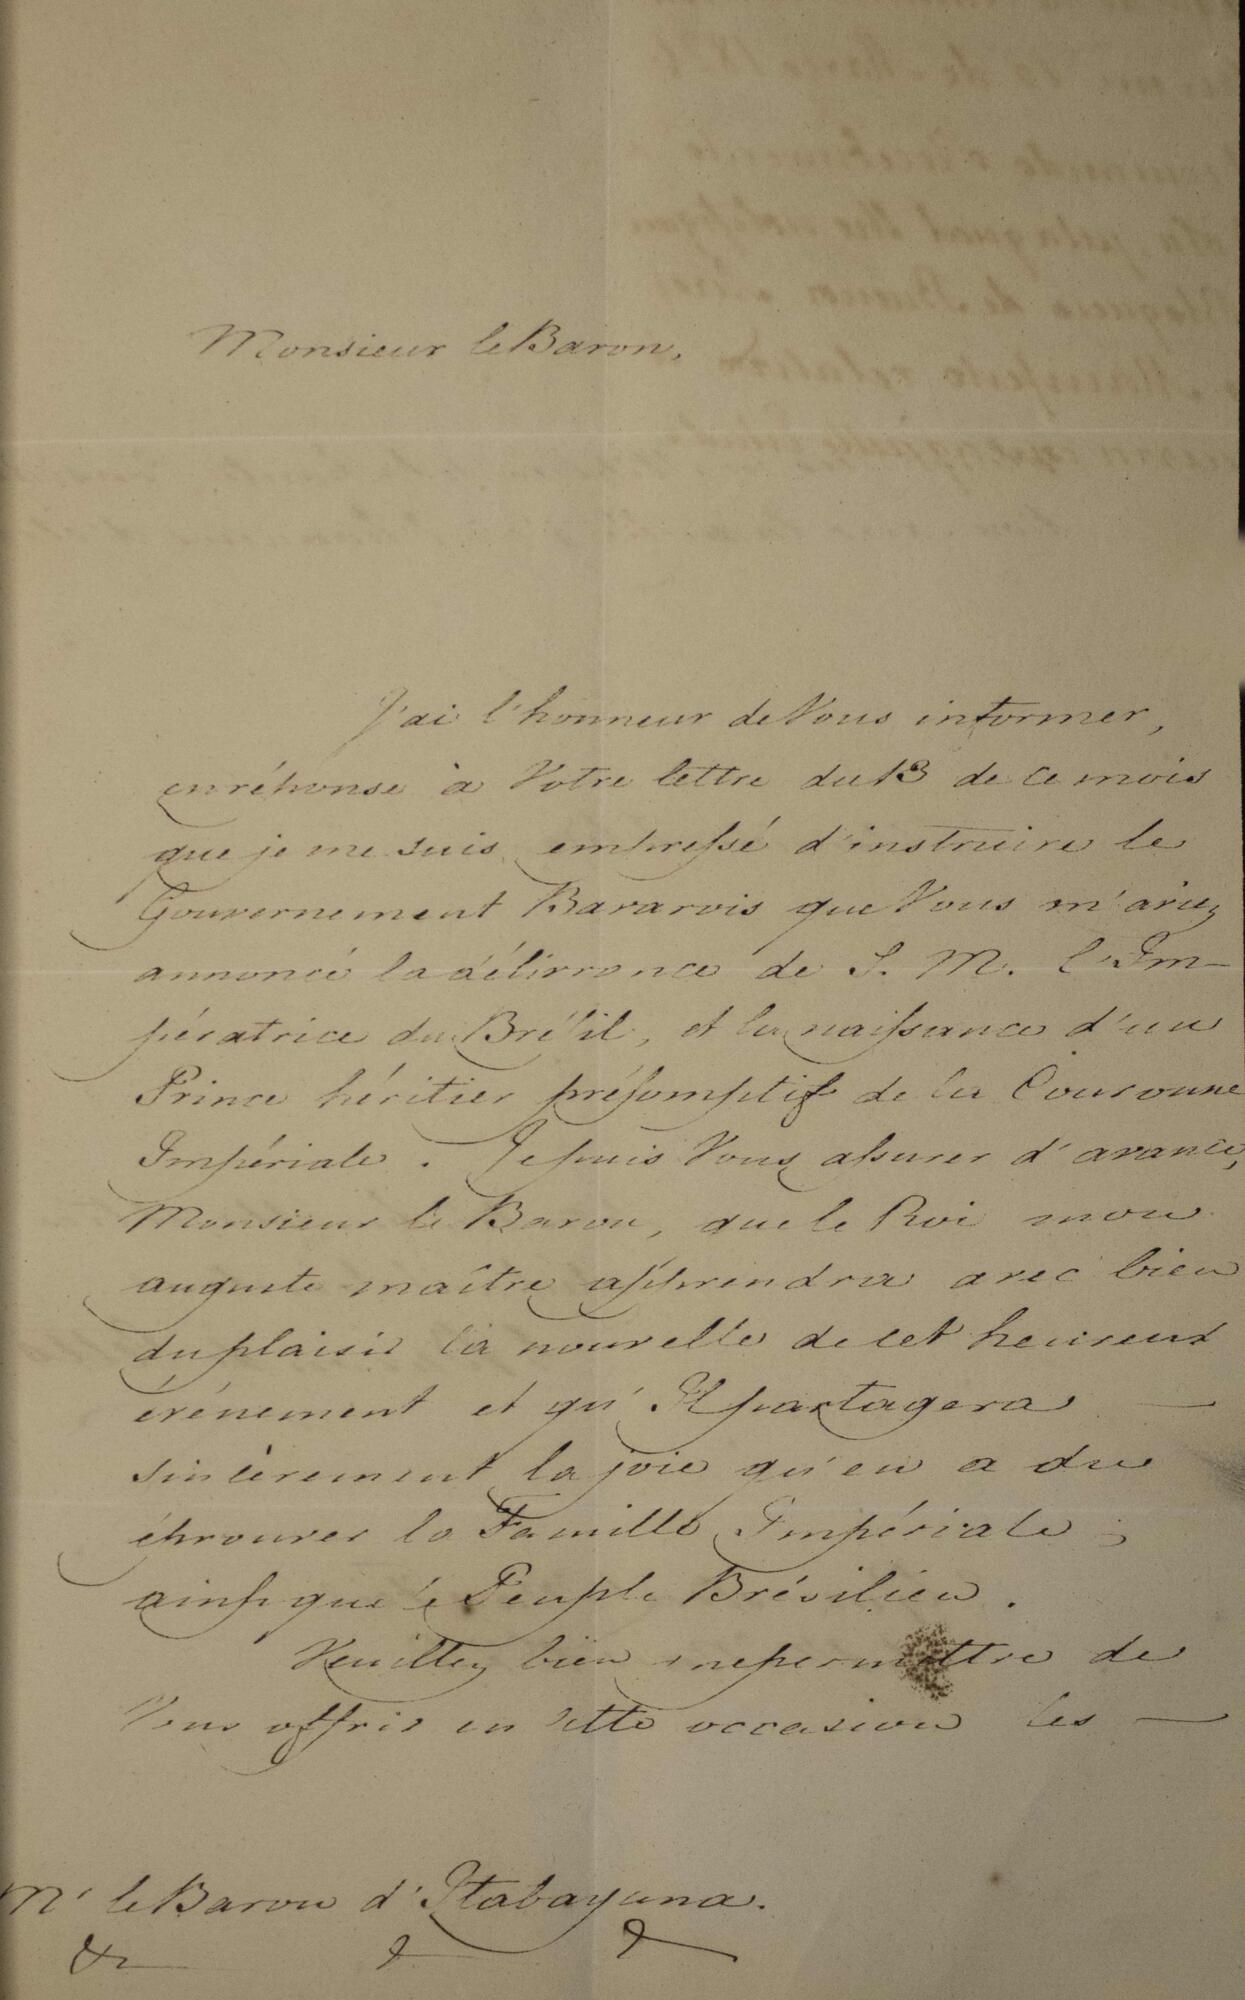 Monsieur le Baron,
J'ai l'honneur de Vous informer,
en réponse à Votre lettre du 13 de ce mois
que je me suis empressé d'instruire le
Gouvernement Bavarois que Vous m'aviez
annoncé la délivrance de S. M. l'Im-
pératrice du Brésil, et la naissance d'un
Prince héritier présomptif de la Couronne
Impériale. Je puis Vous assurer d'avance,
Monsieur le Baron, que le Roi mon
auguste maître apprendra avec bien
du plaisir la nouvelle de cet heureux
événement et qu'Il partagera —
sincèrement la joie qu'en a du
éprouver la Famille Impériale,
ainsi que le Peuple Brésilien.
Veuillez bien me permettre de
Vous offrir en cette occasion les —
Mr le Baron d'Itabayana.
&